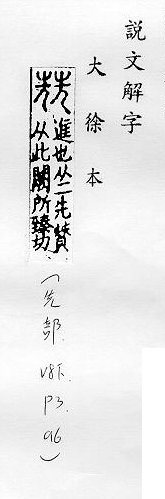 說文解字
大徐本
兟進也从二先贊
从此闕所臻切
(先部.V8下.P3.a6)